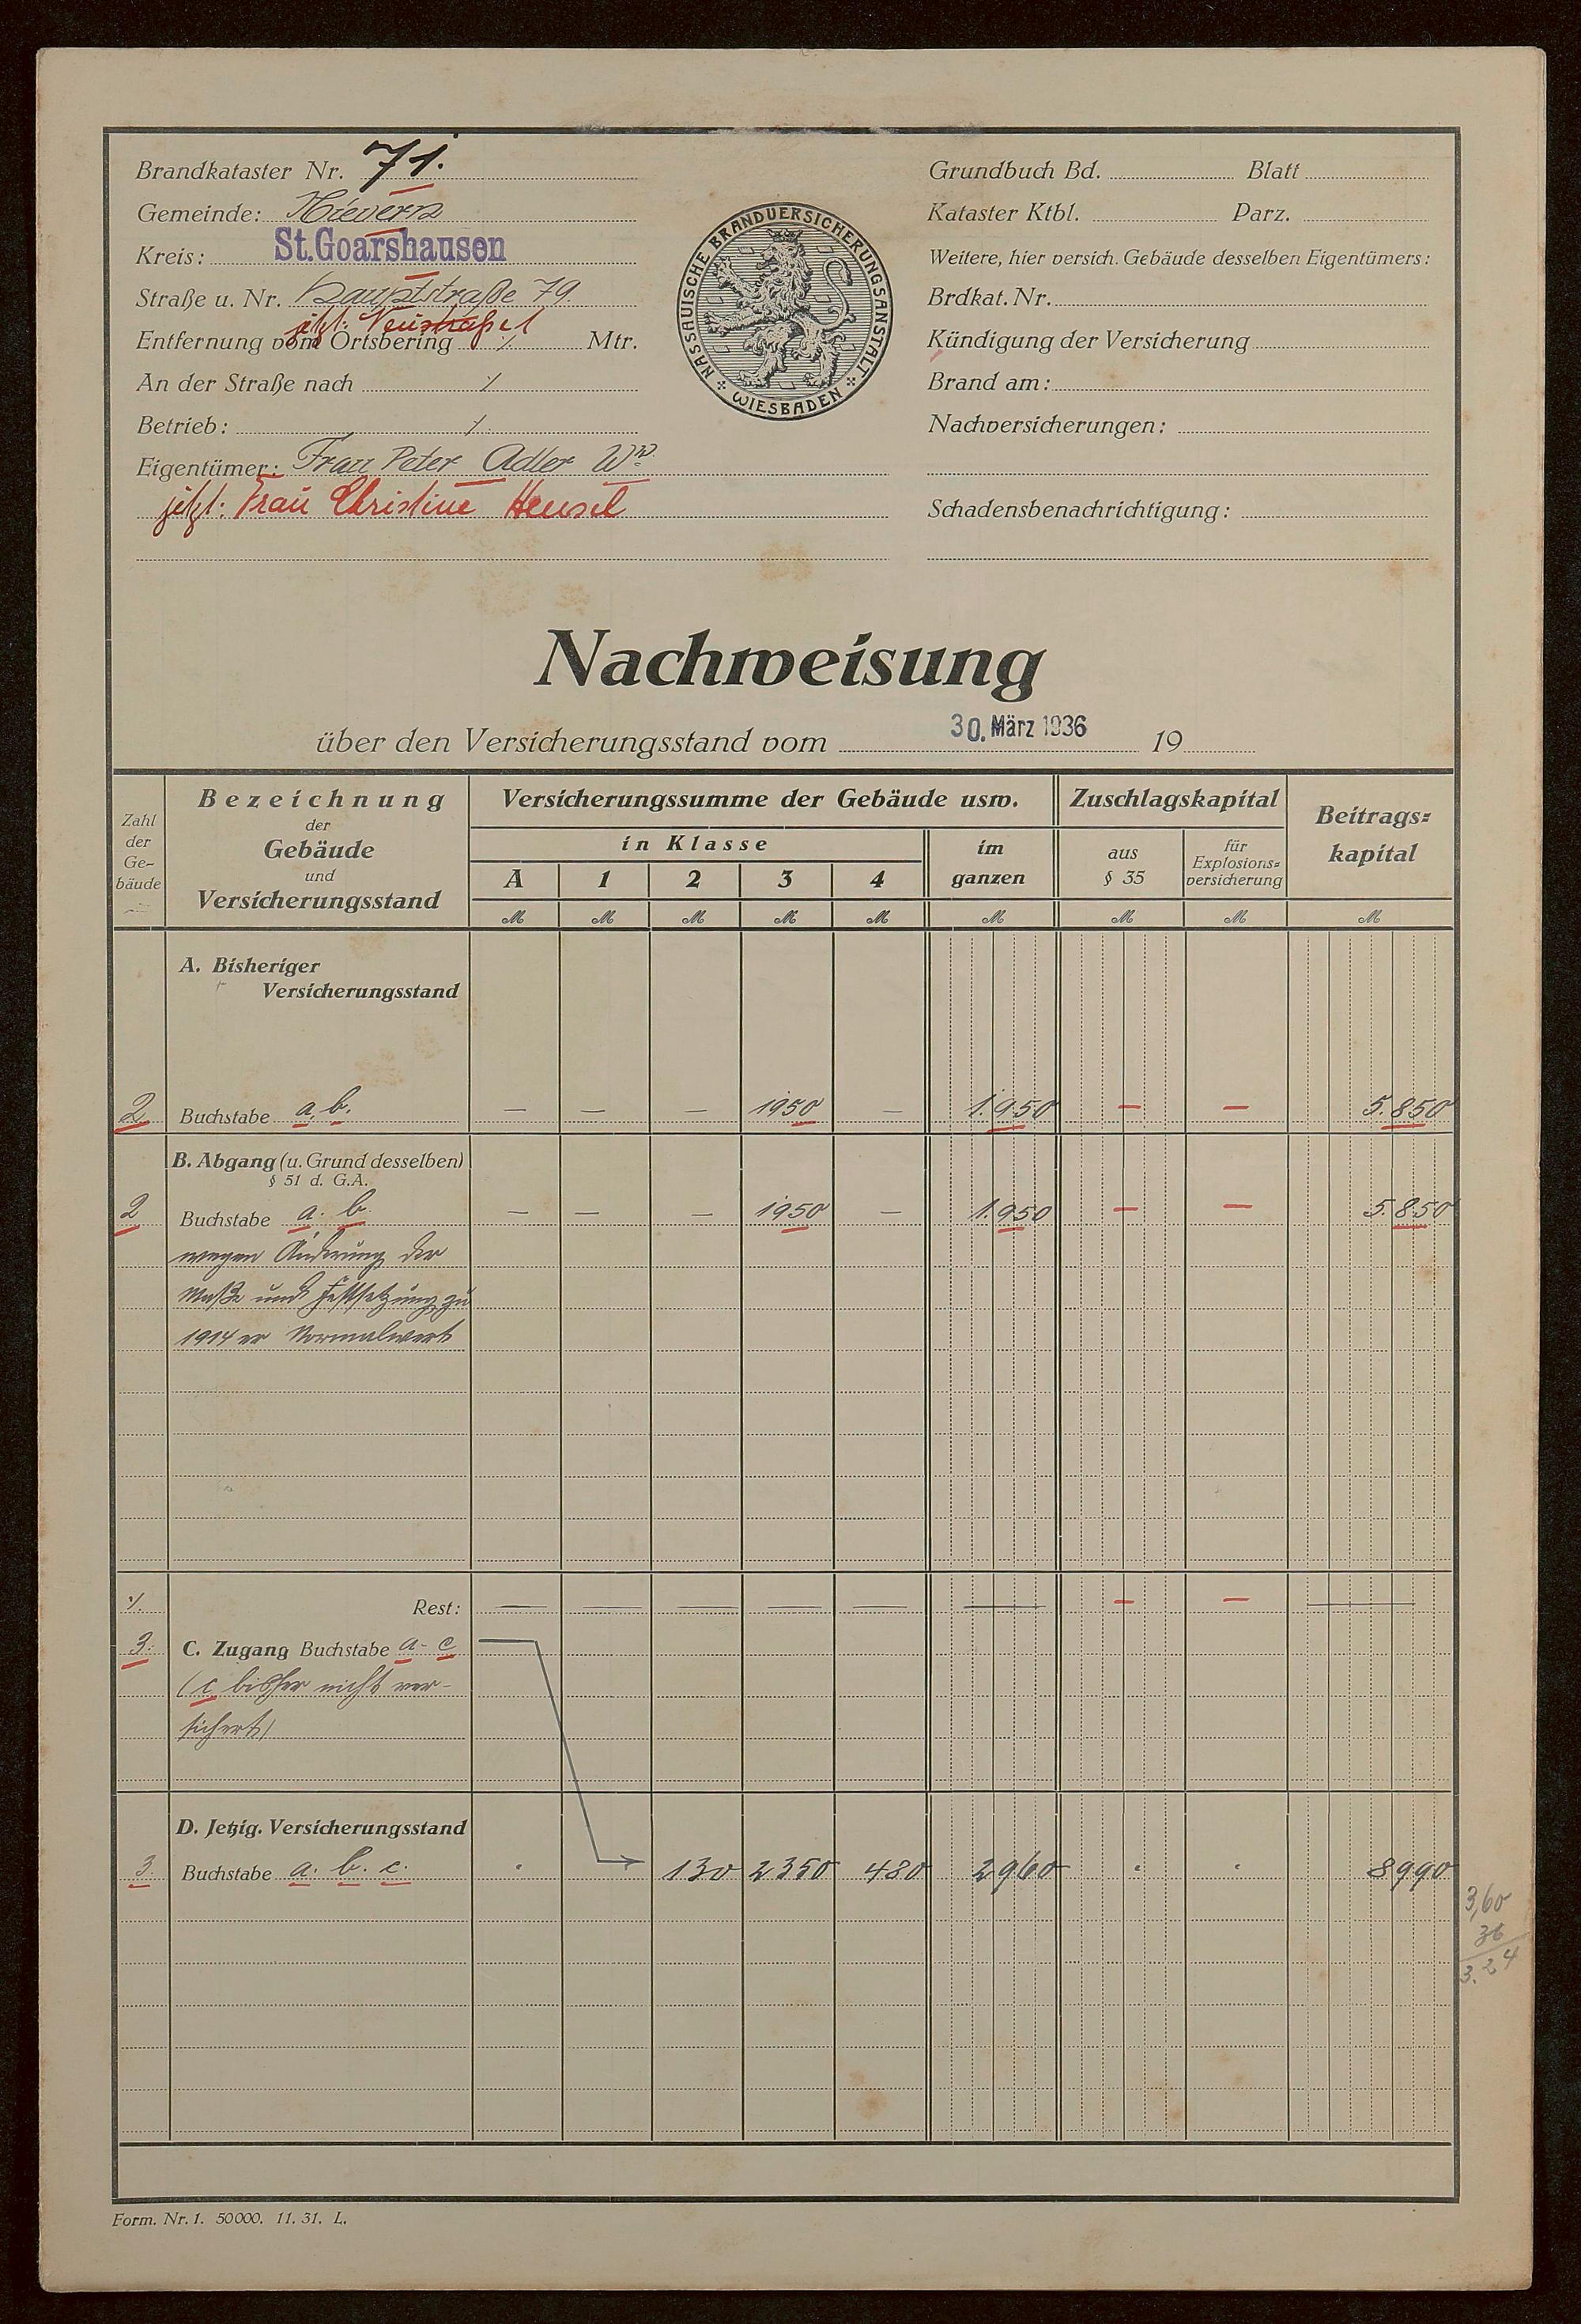 Brandkataster Nr. 71.
Gemeinde: Nievern
Kreis: St.Goarshausen
Straße u. Nr. Hauptstraße 79.
jetzt: Neustraße 1
Entfernung vom Ortsbering ./. Mtr.
An der Straße nach ./.
Betrieb: ./.
Eigentümer: Frau Peter Adler Ww.
jetzt: Frau Christine Hensel
NASSAUISCHE BRANDVERSICHERUNGSANSTALT
WIESBADEN
Grundbuch Bd. Blatt
Kataster Ktbl. Parz.
Weitere, hier versich. Gebäude desselben Eigentümers:
Brdkat. Nr.
Kündigung der Versicherung
Brand am:
Nachversicherungen:
Schadensbenachrichtigung:
Nachweisung
über den Versicherungsstand vom 30. März 1936 19
Zahl der Ge-bäude
Bezeichnung
der
Gebäude
und
Versicherungsstand
Versicherungssumme der Gebäude usw.
in Klasse
A 1 2 3 4
im ganzen
Zuschlagskapital
aus § 35
für Explosions-versicherung
Beitrags-kapital
M M M M M M M M M
A. Bisheriger
Versicherungsstand
2 Buchstabe a, b. — — — 1950 — 1.950 — — 5.850
B. Abgang (u. Grund desselben)
§ 51 d. G.A.
2 Buchstabe a. b. — — — 1950 — 1.950 — — 5.850
wegen Änderung der
Maße und Festsetzung zu
1914 er Normalwert
./. Rest: — — — — — — — — —
3. C. Zugang Buchstabe a - c
(c bisher nicht ver-
sichert)
D. Jetzig. Versicherungsstand
3. Buchstabe a. b. c. 130 2350 480 2960 8990
3,60
36
3.24
Form. Nr. 1. 50000. 11. 31. L.